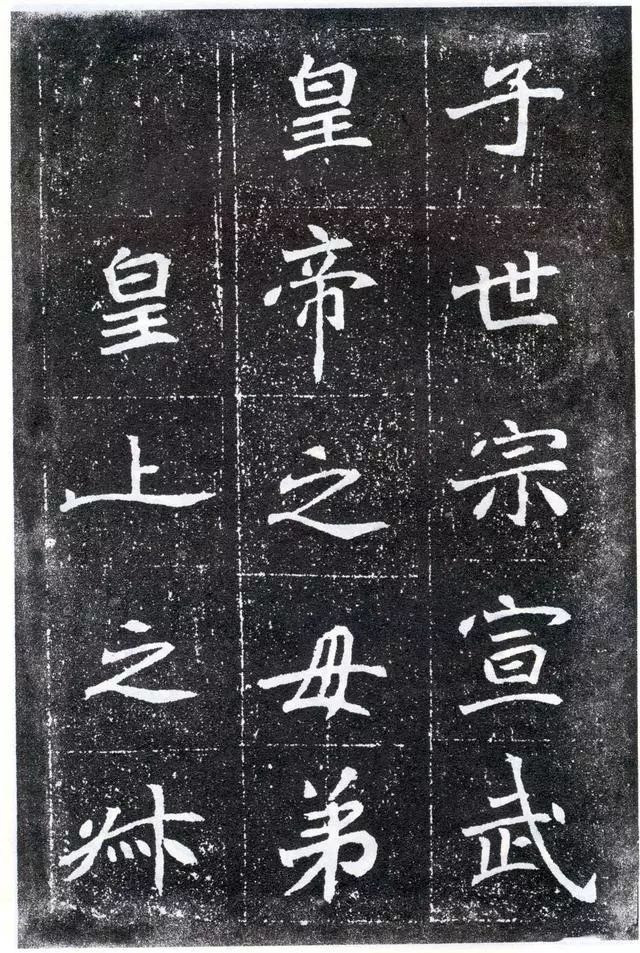 子世宗宣武
皇帝之母弟
皇上之𦭼